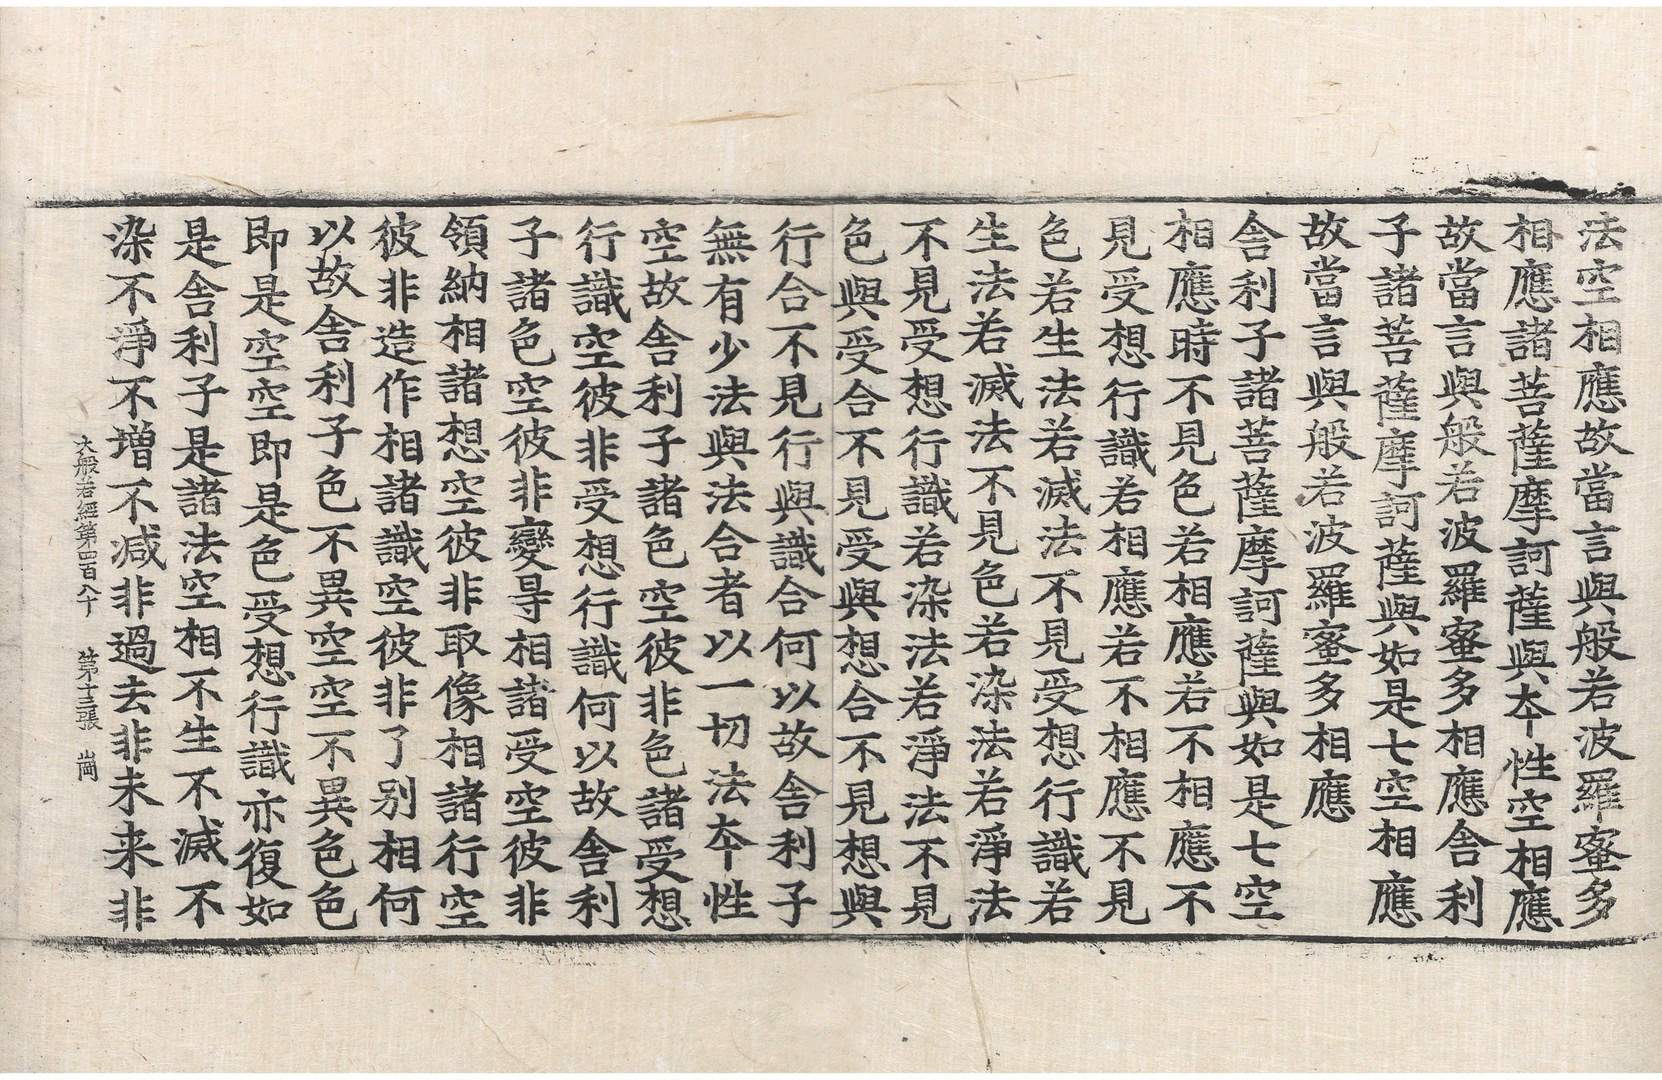 法空相應故當言與般若波羅蜜多
相應諸菩薩摩訶薩與本性空相應
故當言與般若波羅蜜多相應舍利
子諸菩薩摩訶薩與如是七空相應
故當言與般若波羅蜜多相應
舍利子諸菩薩摩訶薩與如是七空
相應時不見色若相應若不相應不
見受想行識若相應若不相應不見
色若生法若滅法不見受想行識若
生法若滅法不見色若染法若淨法
不見受想行識若染法若淨法不見
色與受合不見受與想合不見想與
行合不見行與識合何以故舍利子
無有少法與法合者以一切法本性
空故舍利子諸色空彼非色諸受想
行識空彼非受想行識何以故舍利
子諸色空彼非變㝵相諸受空彼非
領納相諸想空彼非取像相諸行空
彼非造作相諸識空彼非了別相何
以故舍利子色不異空空不異色色
即是空空即是色受想行識亦復如
是舍利子是諸法空相不生不滅不
染不淨不增不減非過去非未来非
大般若經第四百八十 第十三張 崗